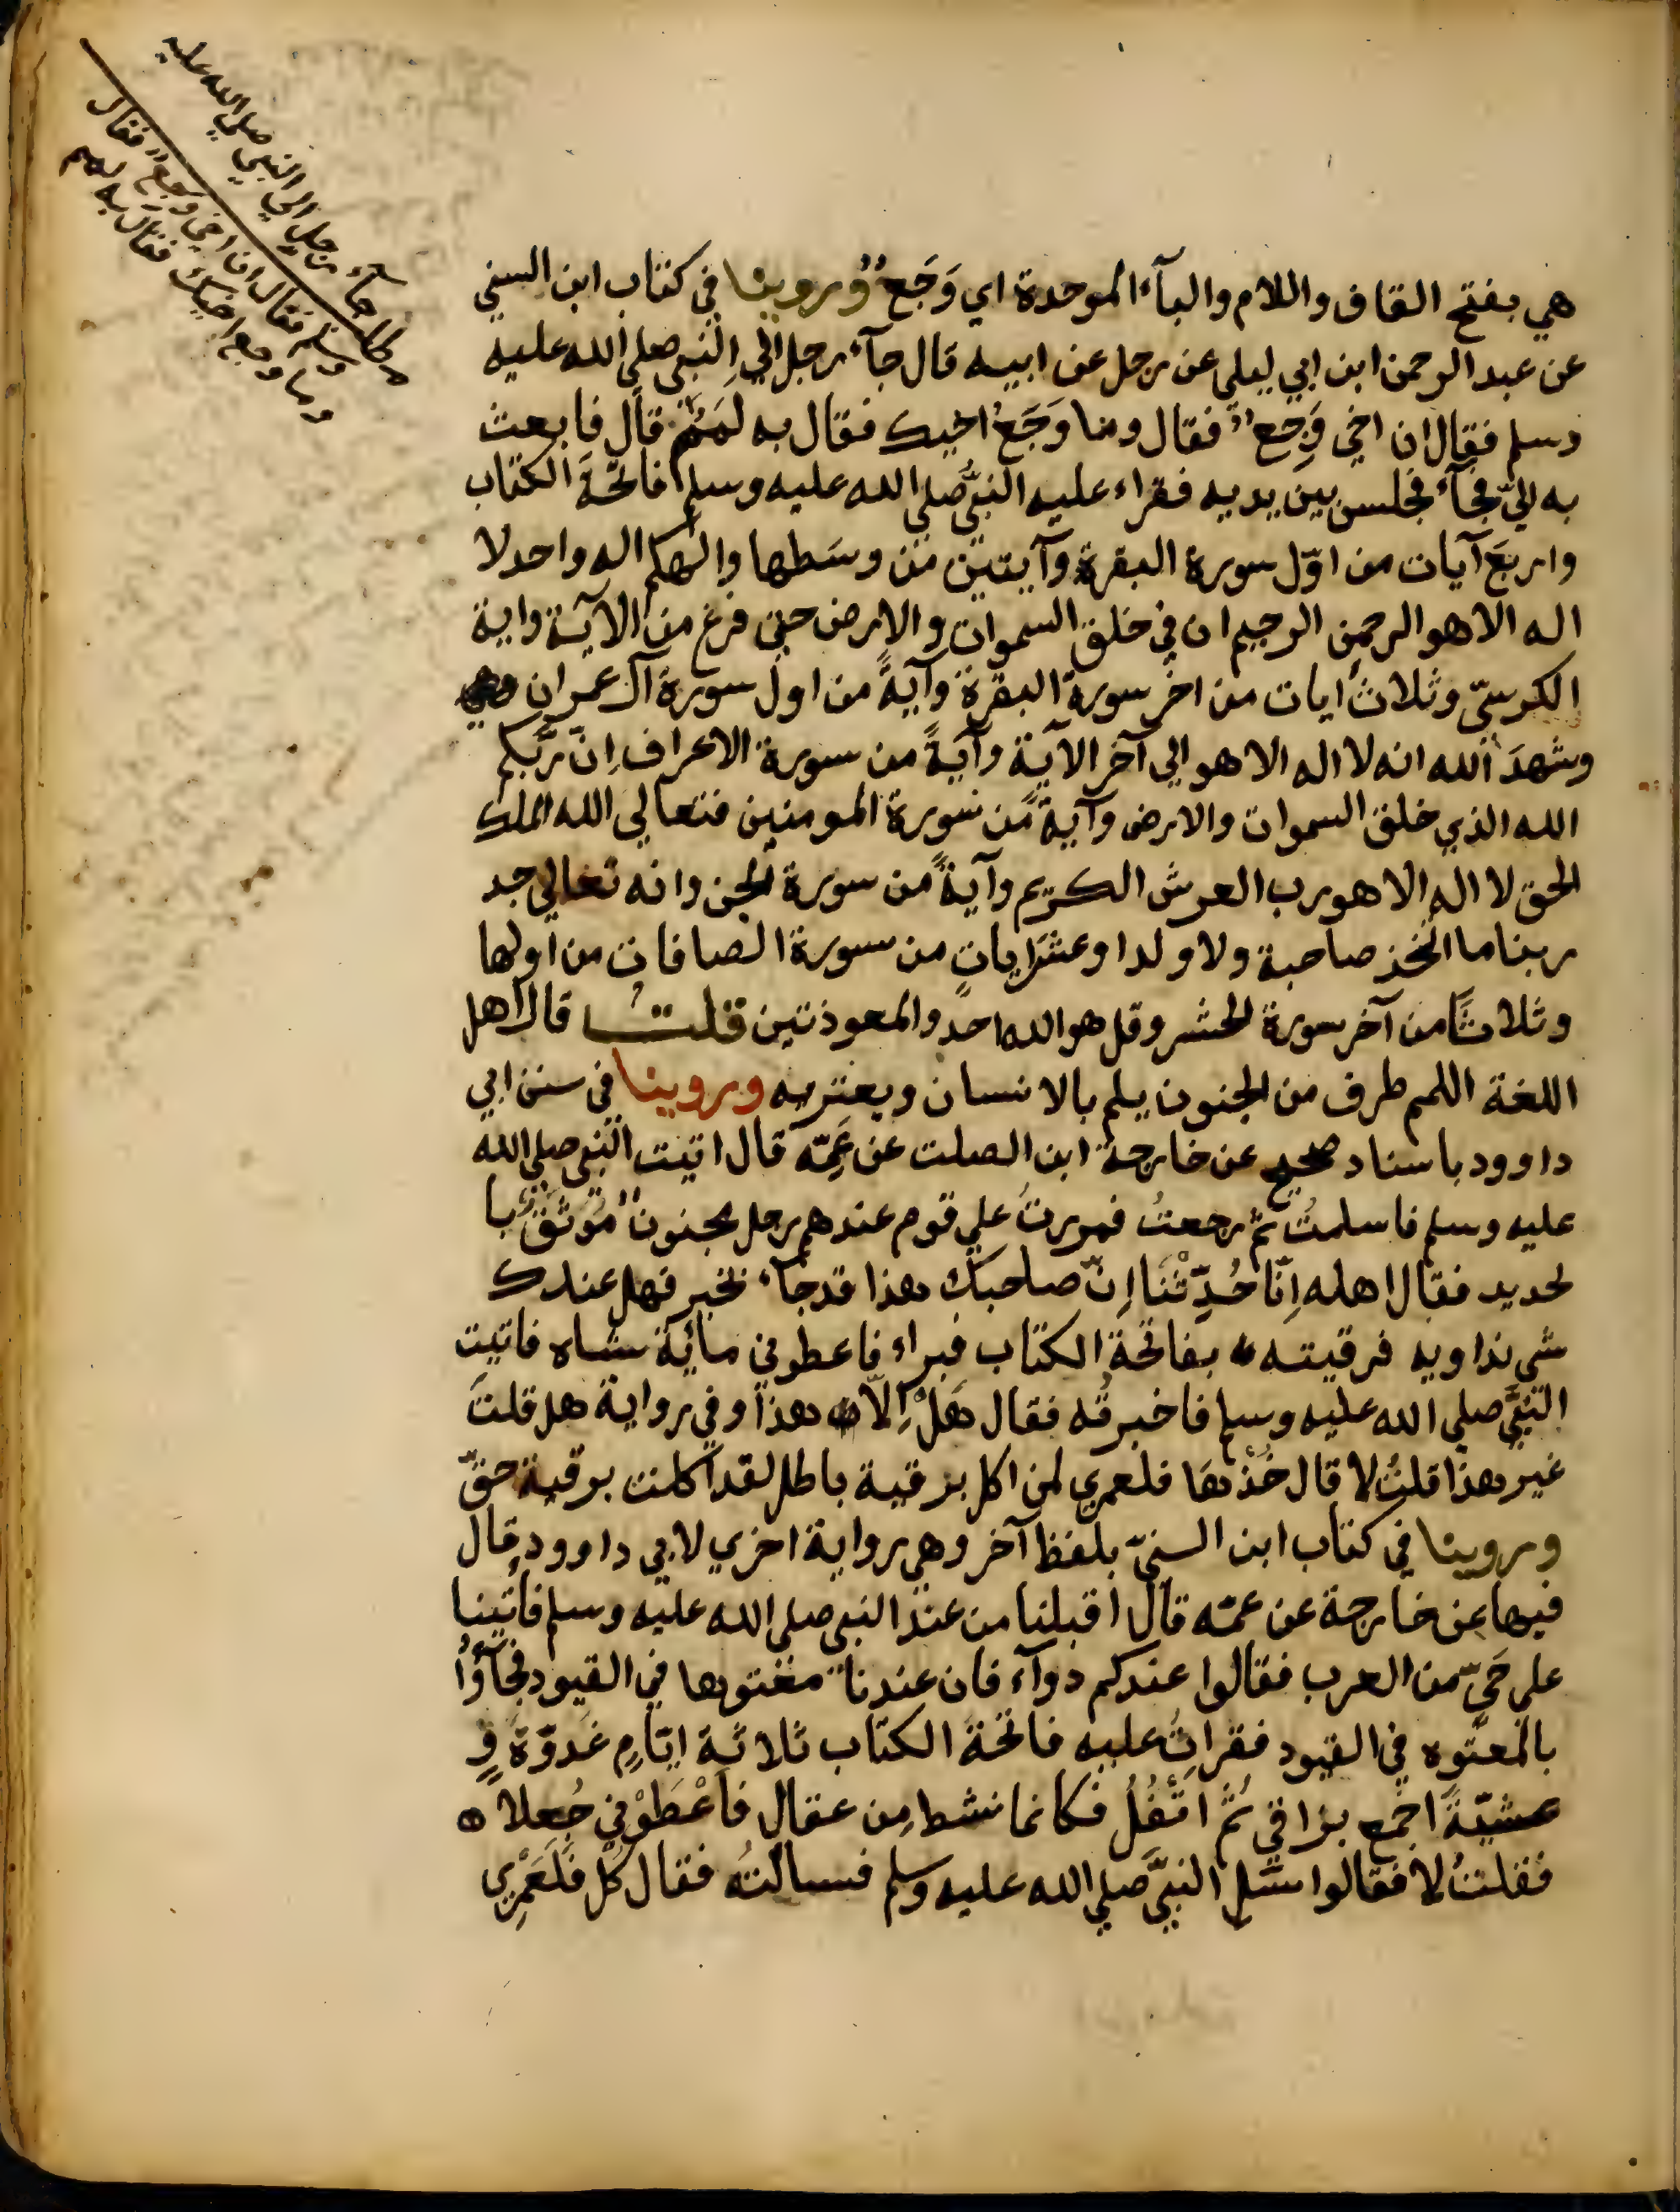 مطلب جاء رجل الي النبي صلي الله عليه
وسلم فقال ان اخي وجع فقال
وما وجع اخيك فقال به لمم
هي بفتح القاف واللام والبآء الموحدة اي وَجَعٌ وروينا في كتاب ابن السني
عن عبد الرحمن ابن ابي ليلي عن رجل عن ابيه قال جآء رجل الي النبي صلي الله عليه
وسلم فقال ان اخي وَجِعٌ فقال وما وَجَعُ اخيك فقال به لَمَمٌ قال فابعث
به اليّ فجآء فجلس بين يديه فقراء عليه النبيُّ صلي الله عليه وسلم فاتحةَ الكتاب
واربعَ آيات من اوّل سورة البقرة وآيتين من وسَطها والهكم اله واحد لا
اله الا هو الرحمن الرحيم ان في خلق السموات والارض حتي فرغ من الآية واية
الكرسيّ وثلاثَ ايات من اخر سورة البقرة وآيةً من اول سورة آل عمران
وشهدَ الله انه لا اله الا هو الي آخر الآية وآيةً من سورة الاعراف اِنّ ربَّكم
الله الذي خلق السموات والارض وآيةً من سورة المومنين فتعالي الله الملك
الحق لا اله الا هو رب العرش الكريم وآيةً من سورة الجن وانه تعالي جد
ربنا ما اتخذ صاحبة ولا ولدا وعشرَ اياتٍ من سورة الصافات من اولها
وثلاثًا من آخر سورة الحشر وقل هو الله احد والمعوذتين قلت قال اهل
اللغة اللمم طرف من الجنون يلم بالانسان ويعتريه وروينا في سنن ابي
داوود باسناد صحيح عن خارجة ابن الصلت عن عَمِّه قال اتيت النبي صلي الله
عليه وسلم فاسلمتُ ثم رجعتُ فمررتُ علي قوم عندهم رجل مجنونٌ مُوثَقٌ با
لحديد فقال اهله اِنّا حُدِّثْنَا اِنّ صاحبك هذا قد جآء بخير فهل عندك
شي نداويه فرقيته بفاتحة الكتاب فبراء فاعطوني مائة شاه فاتيت
النبيَّ صلي الله عليه وسلم فاخبرتُه فقال هَلْ اِلّا هذا وفي رواية هل قلتَ
غير هذا قلتُ لا قال خُذْها فلعمري لمن اكل برقية باطل لقد اكلت برقية حقّ
وروينا في كتاب ابن السنيّ بلفظ آخر وهي رواية اخري لابي داوود قال
فيها عن خارجة عن عمّه قال اقبلنا من عند النبي صلي الله عليه وسلم فاتينا
علي حَيٍّ من العرب فقالوا عندكم دوآء فان عندنا معتوها في القيود فجآؤا
بالمعتوه في القيود فقراتُ عليه فاتحةَ الكتاب ثلاثة ايّامٍ غدوّةً و
عشيّةً اجمع بزاقي ثُمَّ اَتْفُلُ فكانما نشط مِن عقال فاَعْطَوْني جُعلا
فقلتُ لا فقالوا سَلِ النبيَّ صلي الله عليه وسلم فسالتُه فقال كُلْ فَلَعَمْرِي